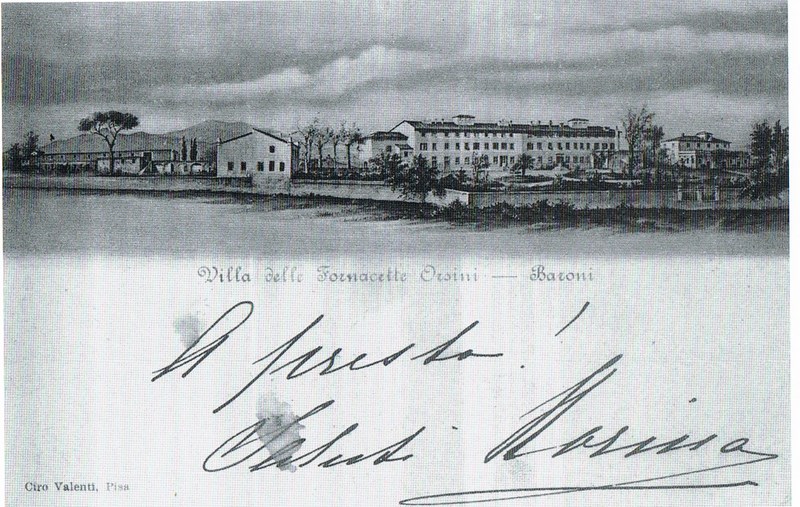 Villa delle Fornacette Orsini — Baroni
A presto!
Saluti Norina
Ciro Valenti, Pisa